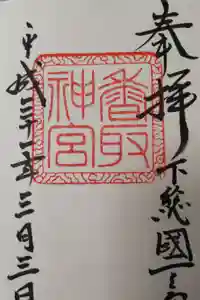 奉拝
下総國一之
香取神宮
平成三十一年三月三日